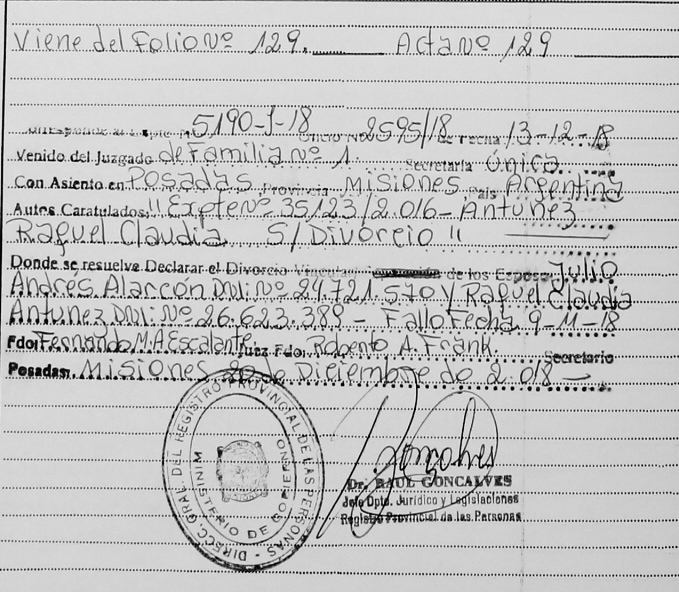 Viene del Folio Nº 129. Acta Nº 129
Corresponde al Expte Nº 5190-J-18 Oficio Nº 2595/18 de Fecha 13-12-18
Venido del Juzgado de Familia Nº 1. Secretaria Única
Con Asiento en Posadas Provincia Misiones Pais Argentina
Autos Caratulados: "Expte Nº 35123/2.016 - Antunez
Raquel Claudia S/Divorcio"
Donde se resuelve Declarar el Divorcio Vincular de los Esposos Julio
Andrés Alarcón DNI: Nº 24.721.570 y Raquel Claudia
Antunez DNI: Nº 26.623.389 - Fallo Fecha 9-11-18
Fdo: Fernando M.A Escalante. Juez Fdo: Roberto A. Frank. Secretario
Posadas, Misiones 20 de Diciembre de 2.018 -
DIRECC. GRAL. DEL REGISTRO PROVINCIAL DE LAS PERSONAS
MINISTERIO DE GOBIERNO
Gonçalves
Dr. RAUL GONCALVES
Jefe Dpto. Jurídico y Legislaciones
Registro Provincial de las Personas